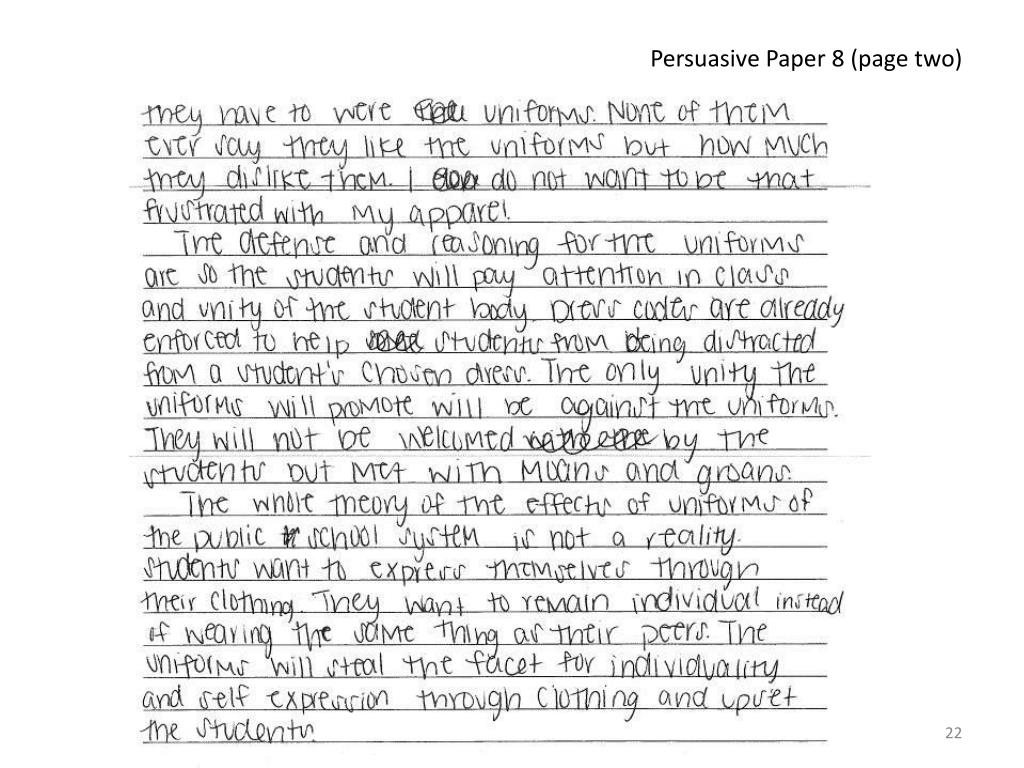 Persuasive Paper 8 (page two)
they have to were uniforms. None of them
ever say they like the uniforms but how much
they dislike them. I do not want to be that
frustrated with my apparel.
The defense and reasoning for the uniforms
are so the students will pay attention in class
and unity of the student body. Dress codes are already
enforced to help students from being distracted
from a student's chosen dress. The only unity the
uniforms will promote will be against the uniforms.
They will not be welcomed by the
students but met with moans and groans.
The whole theory of the effects of uniforms of
the public school system is not a reality.
Students want to express themselves through
their clothing. They want to remain individual instead
of wearing the same thing as their peers. The
uniforms will steal the facet for individuality
and self expression through clothing and upset
the students.
22